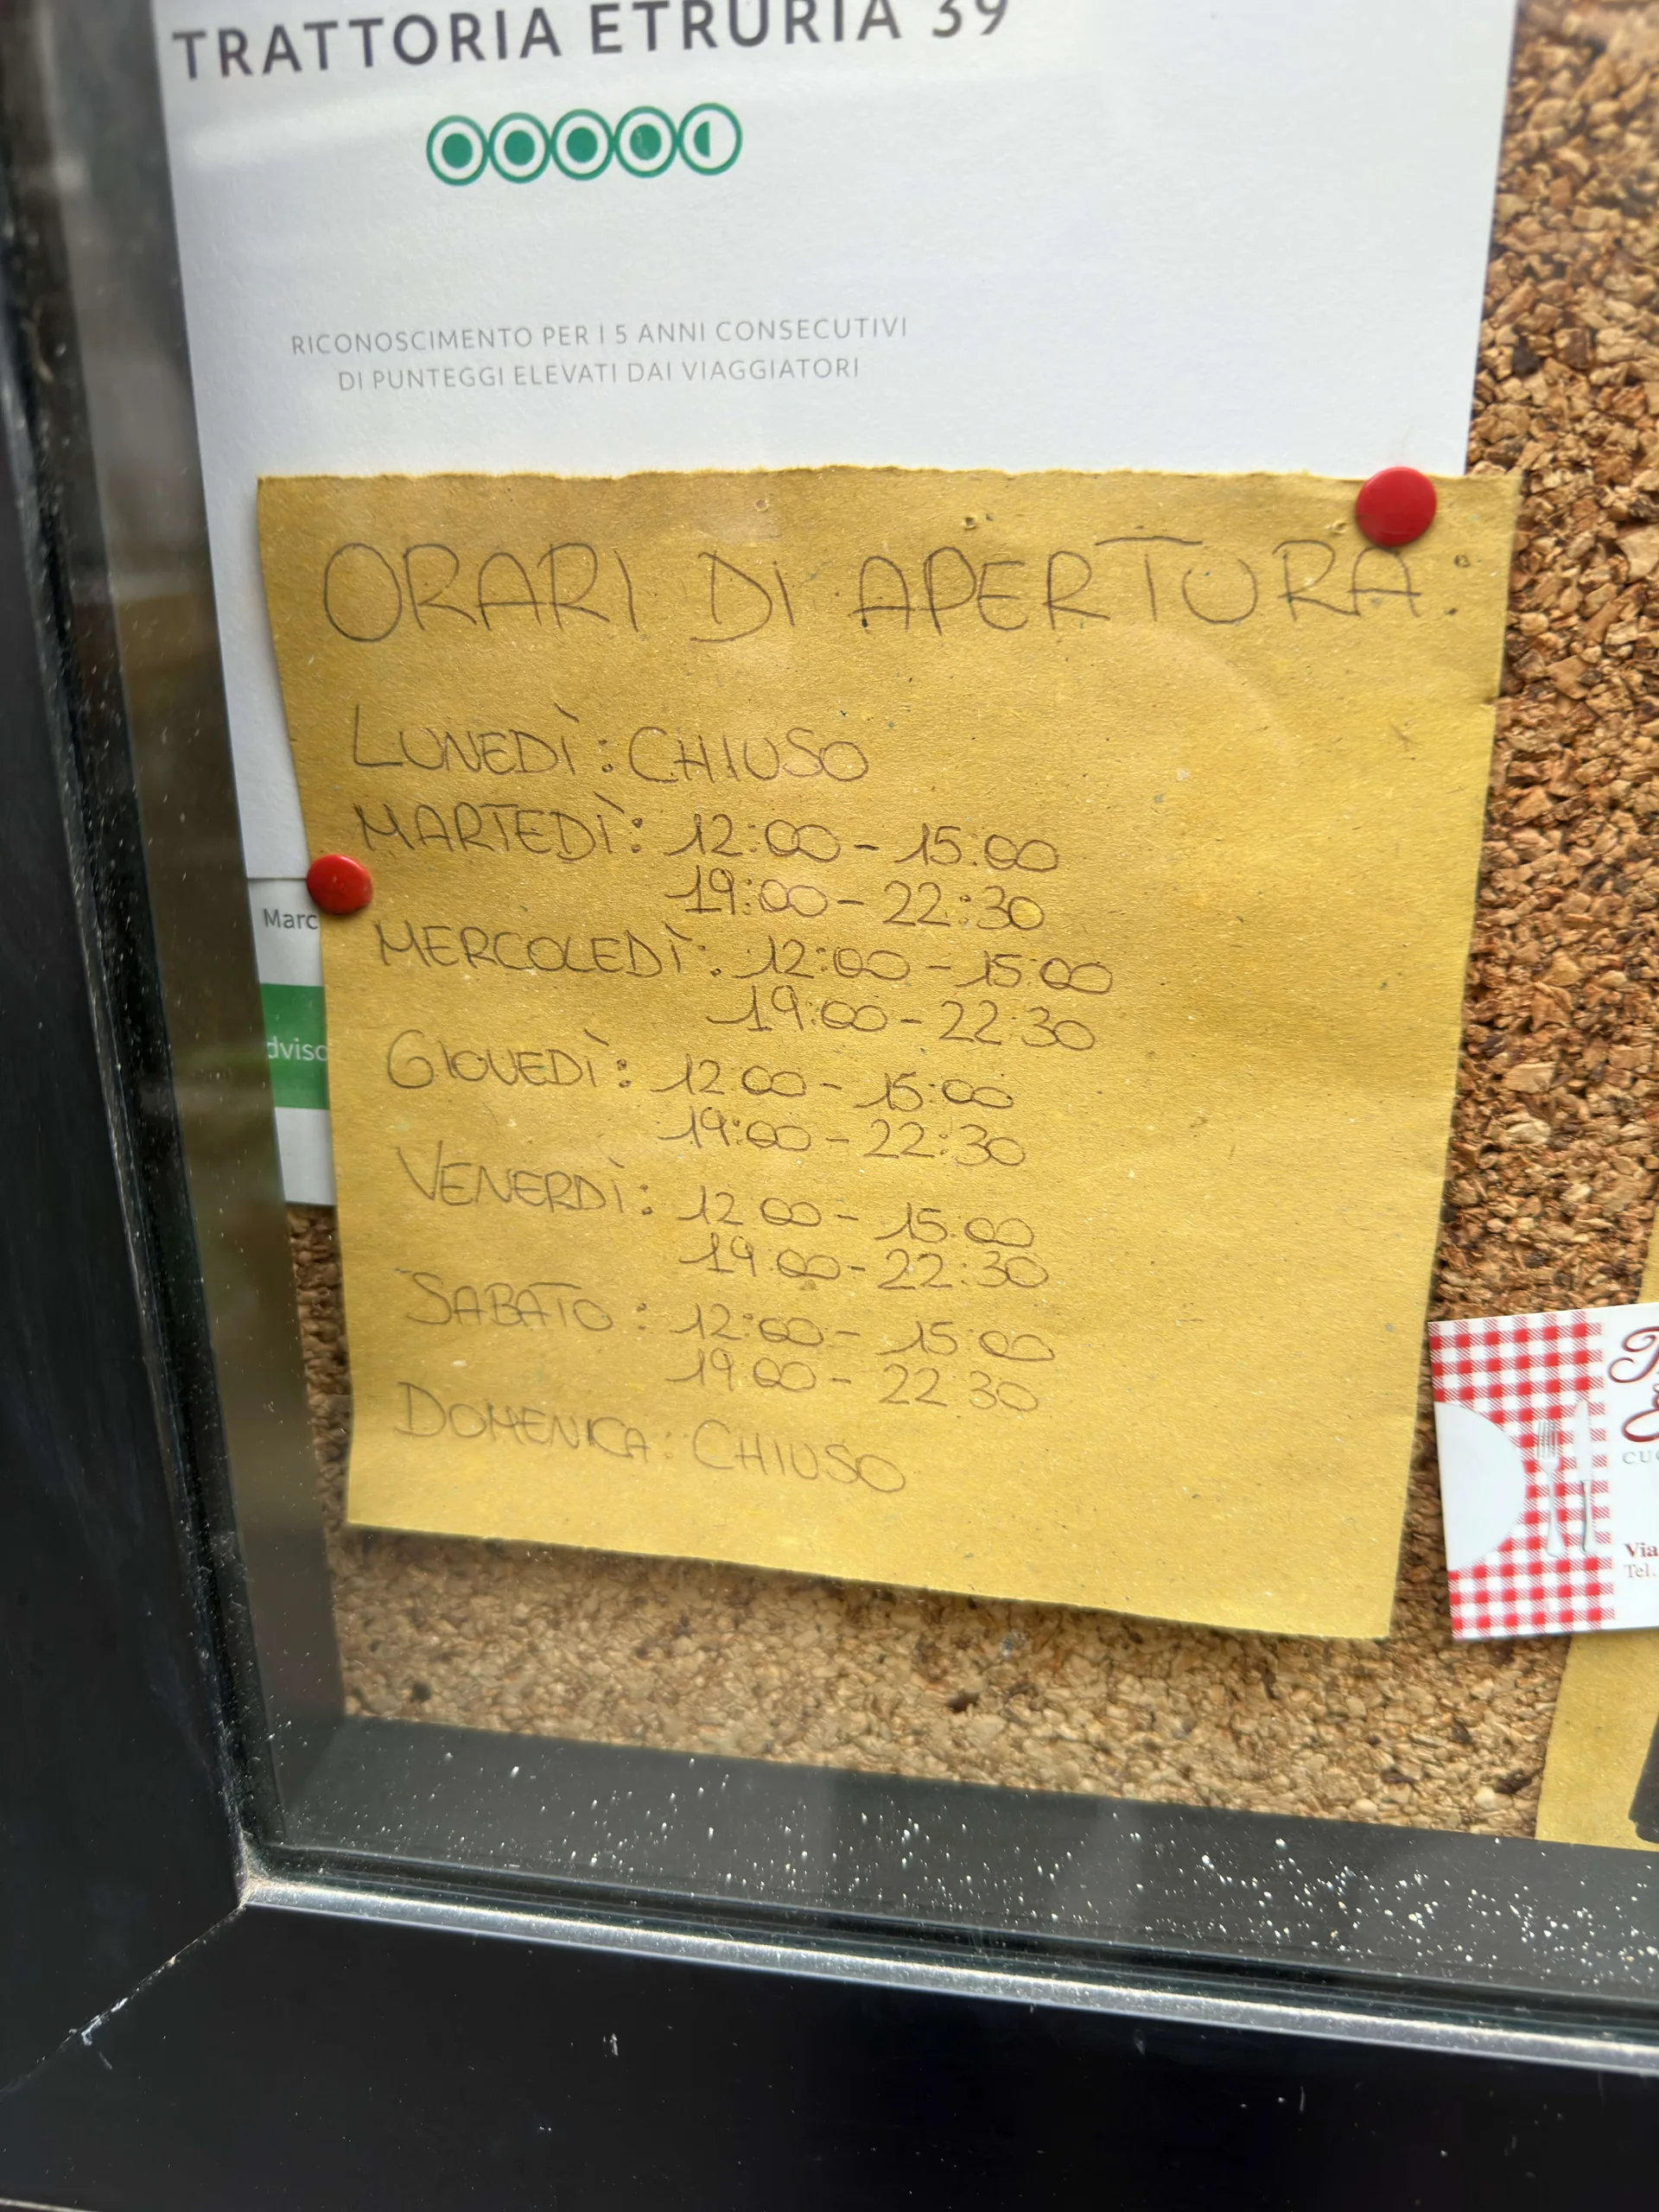 TRATTORIA ETRURIA 39
RICONOSCIMENTO PER I 5 ANNI CONSECUTIVI
DI PUNTEGGI ELEVATI DAI VIAGGIATORI
ORARI DI APERTURA:
LUNEDÌ: CHIUSO
MARTEDÌ: 12:00 - 15:00
19:00 - 22:30
MERCOLEDÌ: 12:00 - 15:00
19:00 - 22:30
GIOVEDÌ: 12:00 - 15:00
19:00 - 22:30
VENERDÌ: 12:00 - 15:00
19:00 - 22:30
SABATO: 12:00 - 15:00
19:00 - 22:30
DOMENICA: CHIUSO
Marc
dviso
Via
Tel.